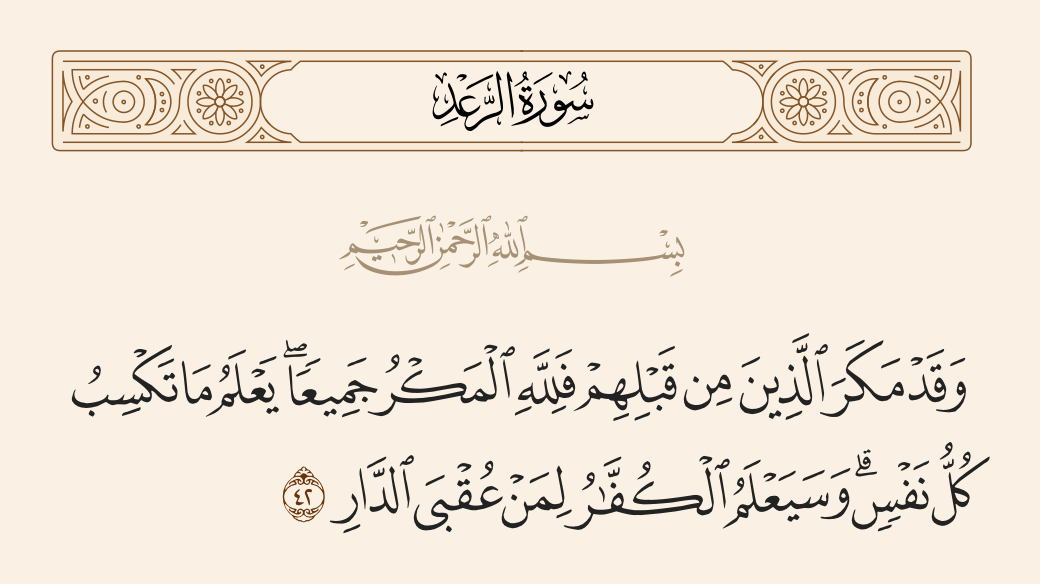 سُورَةُ الرَّعْدِ
بِسْمِ ٱللَّهِ ٱلرَّحْمَٰنِ ٱلرَّحِيمِ
وَقَدْ مَكَرَ ٱلَّذِينَ مِن قَبْلِهِمْ فَلِلَّهِ ٱلْمَكْرُ جَمِيعًا ۖ يَعْلَمُ مَا تَكْسِبُ
كُلُّ نَفْسٍ ۗ وَسَيَعْلَمُ ٱلْكُفَّٰرُ لِمَنْ عُقْبَى ٱلدَّارِ ٤٢